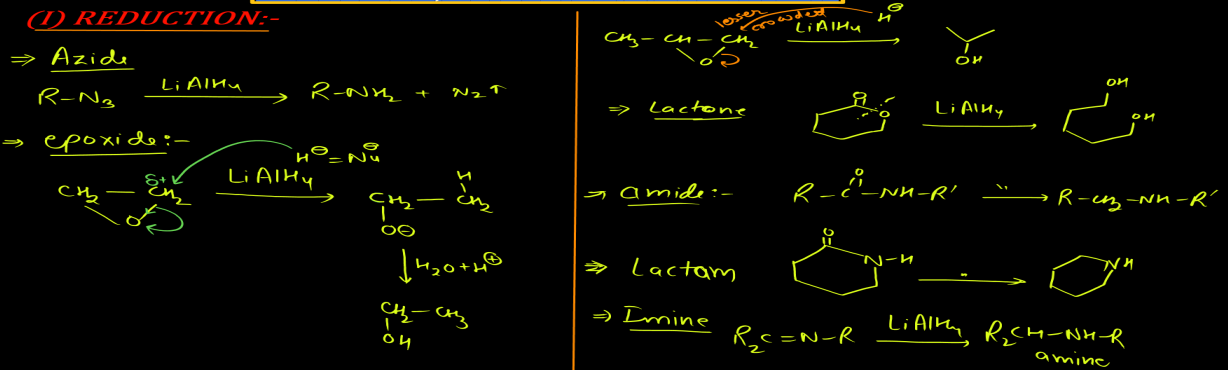 (I) REDUCTION:-
⇒ Azide
R-N₃ LiAlH₄ → R-NH₂ + N₂↑
⇒ epoxide:-
H⊖ = Nu⊖
δ+
CH₂ — CH₂ LiAlH₄ →
O
H
CH₂ — CH₂
O⊖
↓ H₂O + H⊕
CH₂ - CH₃
OH
lesser crowded
H⊖
CH₃ - CH - CH₂ LiAlH₄ →
O
OH
⇒ Lactone
O
O
LiAlH₄ →
OH
OH
→ amide:-
O
R - C - NH - R' " → R - CH₂ - NH - R'
⇒ Lactam
O
N-H → NH
⇒ Imine
R₂C = N - R LiAlH₄ → R₂CH - NH - R
amine